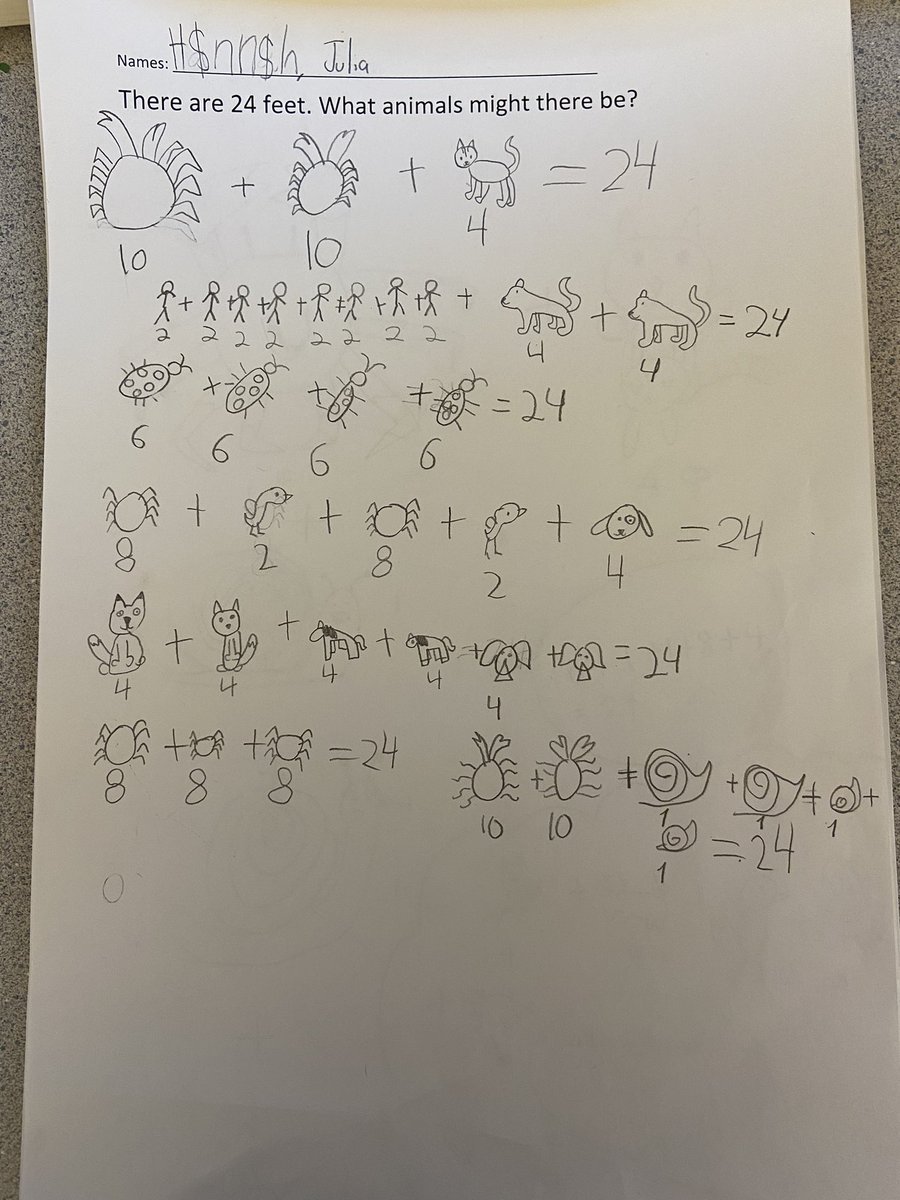 Names: H$nn$h, Julia
There are 24 feet. What animals might there be?
+ + = 24
10 10 4
+ + + + + + + + + = 24
2 2 2 2 2 2 2 2 4 4
+ + + = 24
6 6 6 6
+ + + + = 24
8 2 8 2 4
+ + + + + = 24
4 4 4 4 4
+ + = 24
8 8 8
+ + + + +
10 10 1 1 1
= 24
1